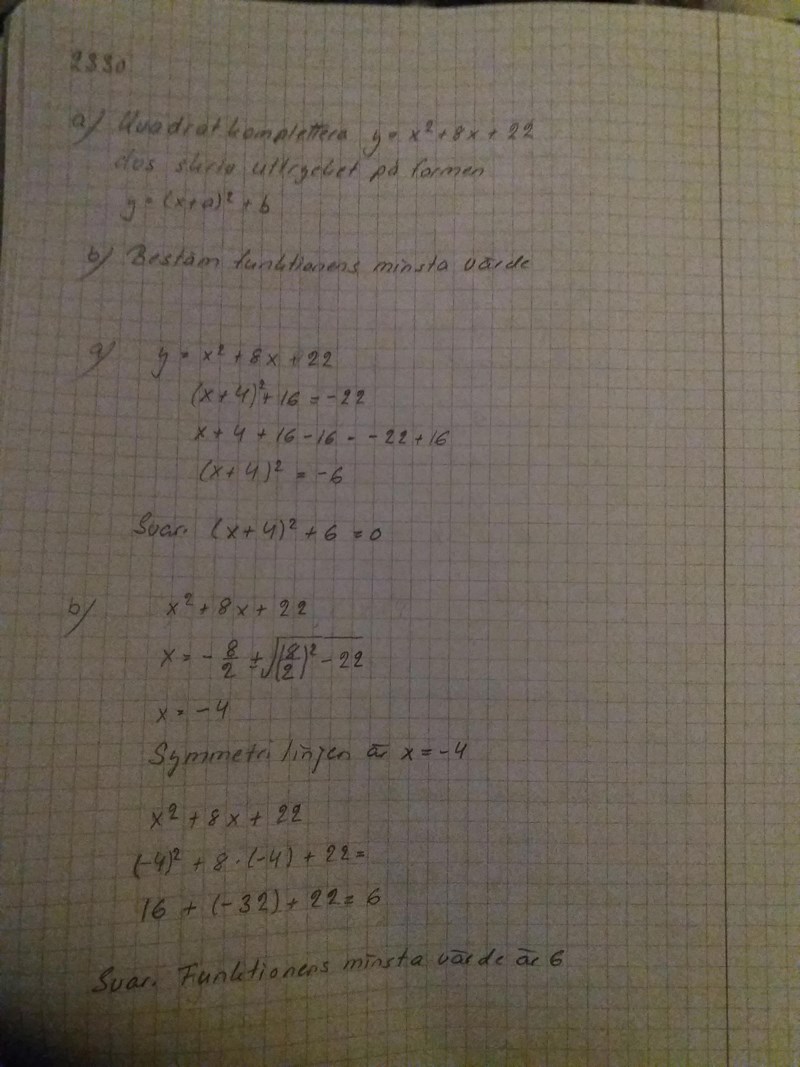 2330
a) Kvadratkomplettera y = x² + 8x + 22
dvs skriv uttrycket på formen
y = (x+a)² + b
b) Bestäm funktionens minsta värde
a) y = x² + 8x + 22
(x+4)² + 16 = -22
x + 4 + 16 - 16 = -22 + 16
(x+4)² = -6
Svar. (x+4)² + 6 = 0
b) x² + 8x + 22
x = - 8/2 ± √(8/2)² - 22
x = -4
Symmetri linjen är x = -4
x² + 8x + 22
(-4)² + 8 · (-4) + 22 =
16 + (-32) + 22 = 6
Svar. Funktionens minsta värde är 6